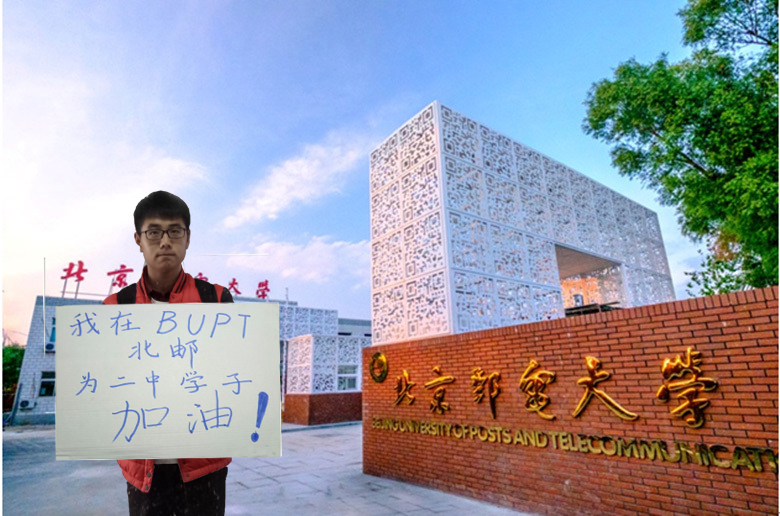 北京邮电大學
我在BUPT
北邮
为二中学子
加油！
北京郵電大學
BEIJING UNIVERSITY OF POSTS AND TELECOMMUNICATI